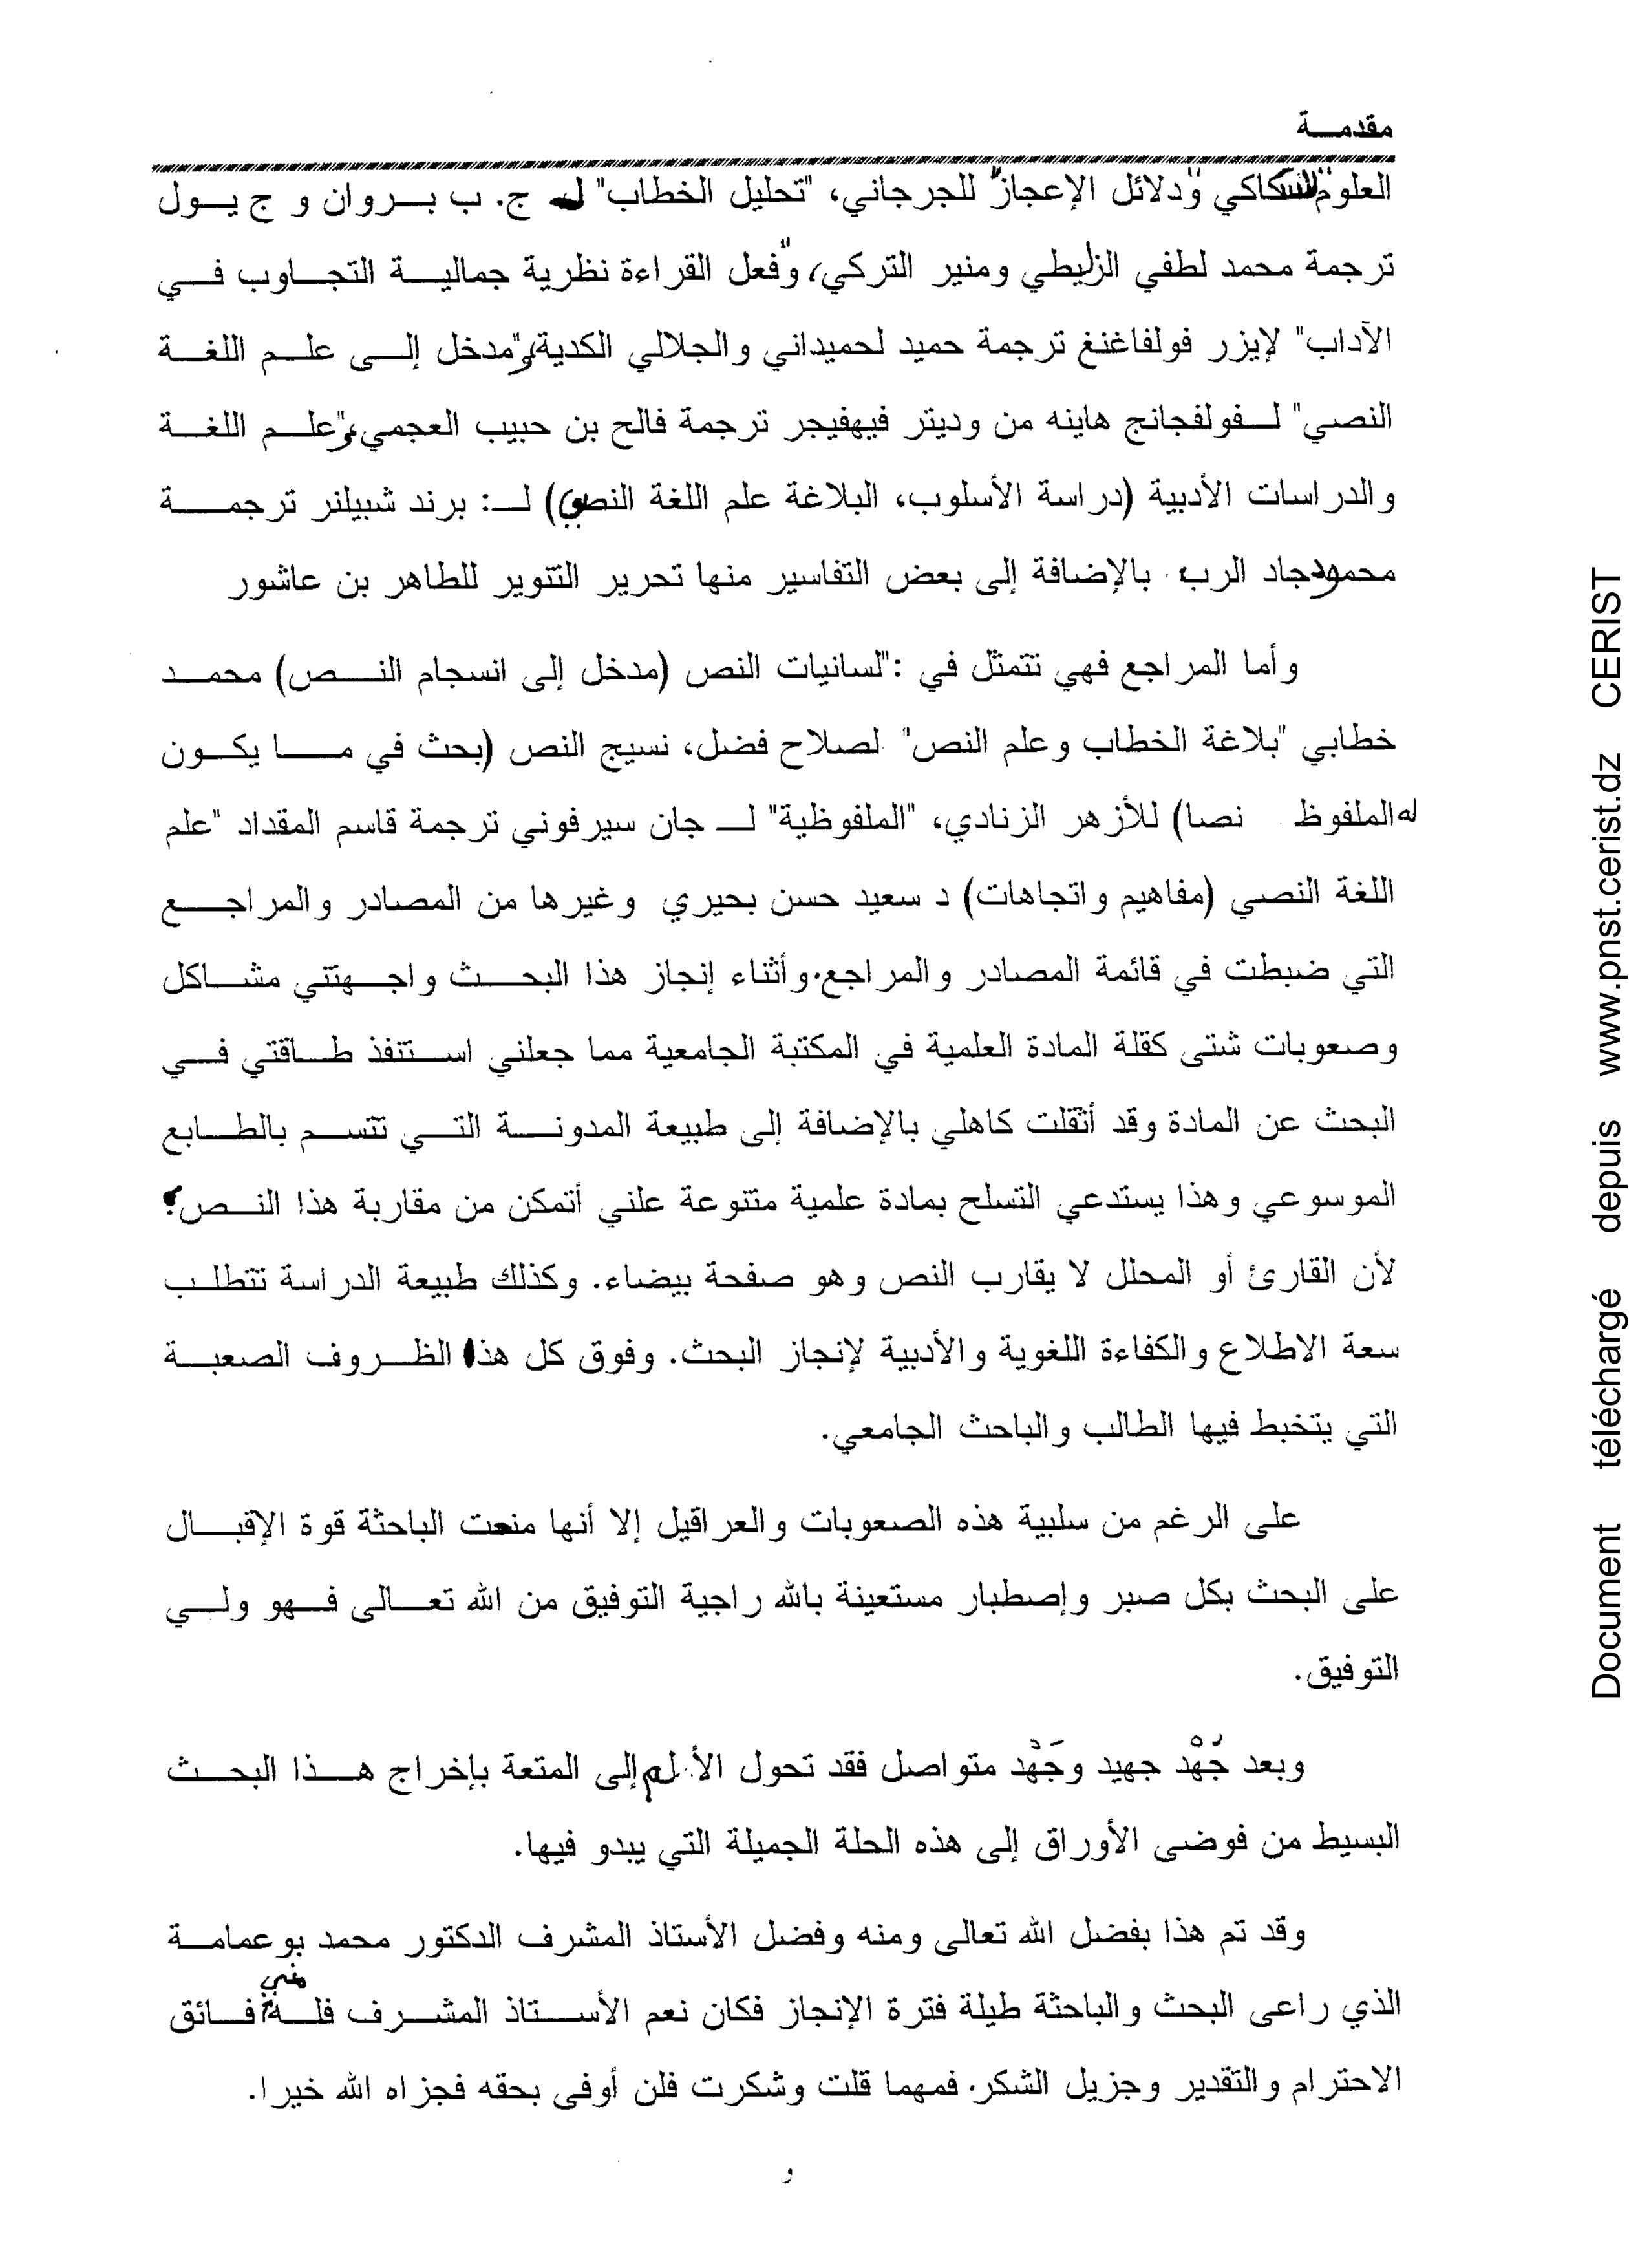 مقدمــة
العلوم" للسكاكي و"دلائل الإعجاز" للجرجاني، "تحليل الخطاب" لـ ج. ب بــروان و ج يــول
ترجمة محمد لطفي الزليطي ومنير التركي، و"فعل القراءة نظرية جماليــة التجــاوب فــي
الآداب" لإيزر فولفاغنغ ترجمة حميد لحميداني والجلالي الكدية، و"مدخل إلــى علــم اللغــة
النصي" لــفولفجانج هاينه من وديتر فيهفيجر ترجمة فالح بن حبيب العجمي، و"علــم اللغــة
والدراسات الأدبية (دراسة الأسلوب، البلاغة علم اللغة النصي) لــ: برند شبيلنر ترجمــة
محمود جاد الرب، بالإضافة إلى بعض التفاسير منها تحرير التنوير للطاهر بن عاشور
وأما المراجع فهي تتمثل في :"لسانيات النص (مدخل إلى انسجام النــص) محمــد
خطابي "بلاغة الخطاب وعلم النص" لصلاح فضل، نسيج النص (بحث في مــا يكــون
له الملفوظ نصا) للأزهر الزنادي، "الملفوظية" لــ جان سيرفوني ترجمة قاسم المقداد "علم
اللغة النصي (مفاهيم واتجاهات) د سعيد حسن بحيري وغيرها من المصادر والمراجــع
التي ضبطت في قائمة المصادر والمراجع. وأثناء إنجاز هذا البحــث واجــهتني مشــاكل
وصعوبات شتى كقلة المادة العلمية في المكتبة الجامعية مما جعلني اســتنفذ طــاقتي فــي
البحث عن المادة وقد أثقلت كاهلي بالإضافة إلى طبيعة المدونــة التــي تتســم بالطــابع
الموسوعي وهذا يستدعي التسلح بمادة علمية متنوعة علني أتمكن من مقاربة هذا النــص؟
لأن القارئ أو المحلل لا يقارب النص وهو صفحة بيضاء. وكذلك طبيعة الدراسة تتطلــب
سعة الاطلاع والكفاءة اللغوية والأدبية لإنجاز البحث. وفوق كل هذا الظــروف الصعبــة
التي يتخبط فيها الطالب والباحث الجامعي.
على الرغم من سلبية هذه الصعوبات والعراقيل إلا أنها منحت الباحثة قوة الإقبــال
على البحث بكل صبر وإصطبار مستعينة بالله راجية التوفيق من الله تعــالى فــهو ولــي
التوفيق.
وبعد جُهْد جهيد وجَهْد متواصل فقد تحول الألم إلى المتعة بإخراج هــذا البحــث
البسيط من فوضى الأوراق إلى هذه الحلة الجميلة التي يبدو فيها.
وقد تم هذا بفضل الله تعالى ومنه وفضل الأستاذ المشرف الدكتور محمد بوعمامــة
الذي راعى البحث والباحثة طيلة فترة الإنجاز فكان نعم الأســتاذ المشــرف فلــه مني فــائق
الاحترام والتقدير وجزيل الشكر. فمهما قلت وشكرت فلن أوفى بحقه فجزاه الله خيرا.
و
Document téléchargé depuis www.pnst.cerist.dz CERIST